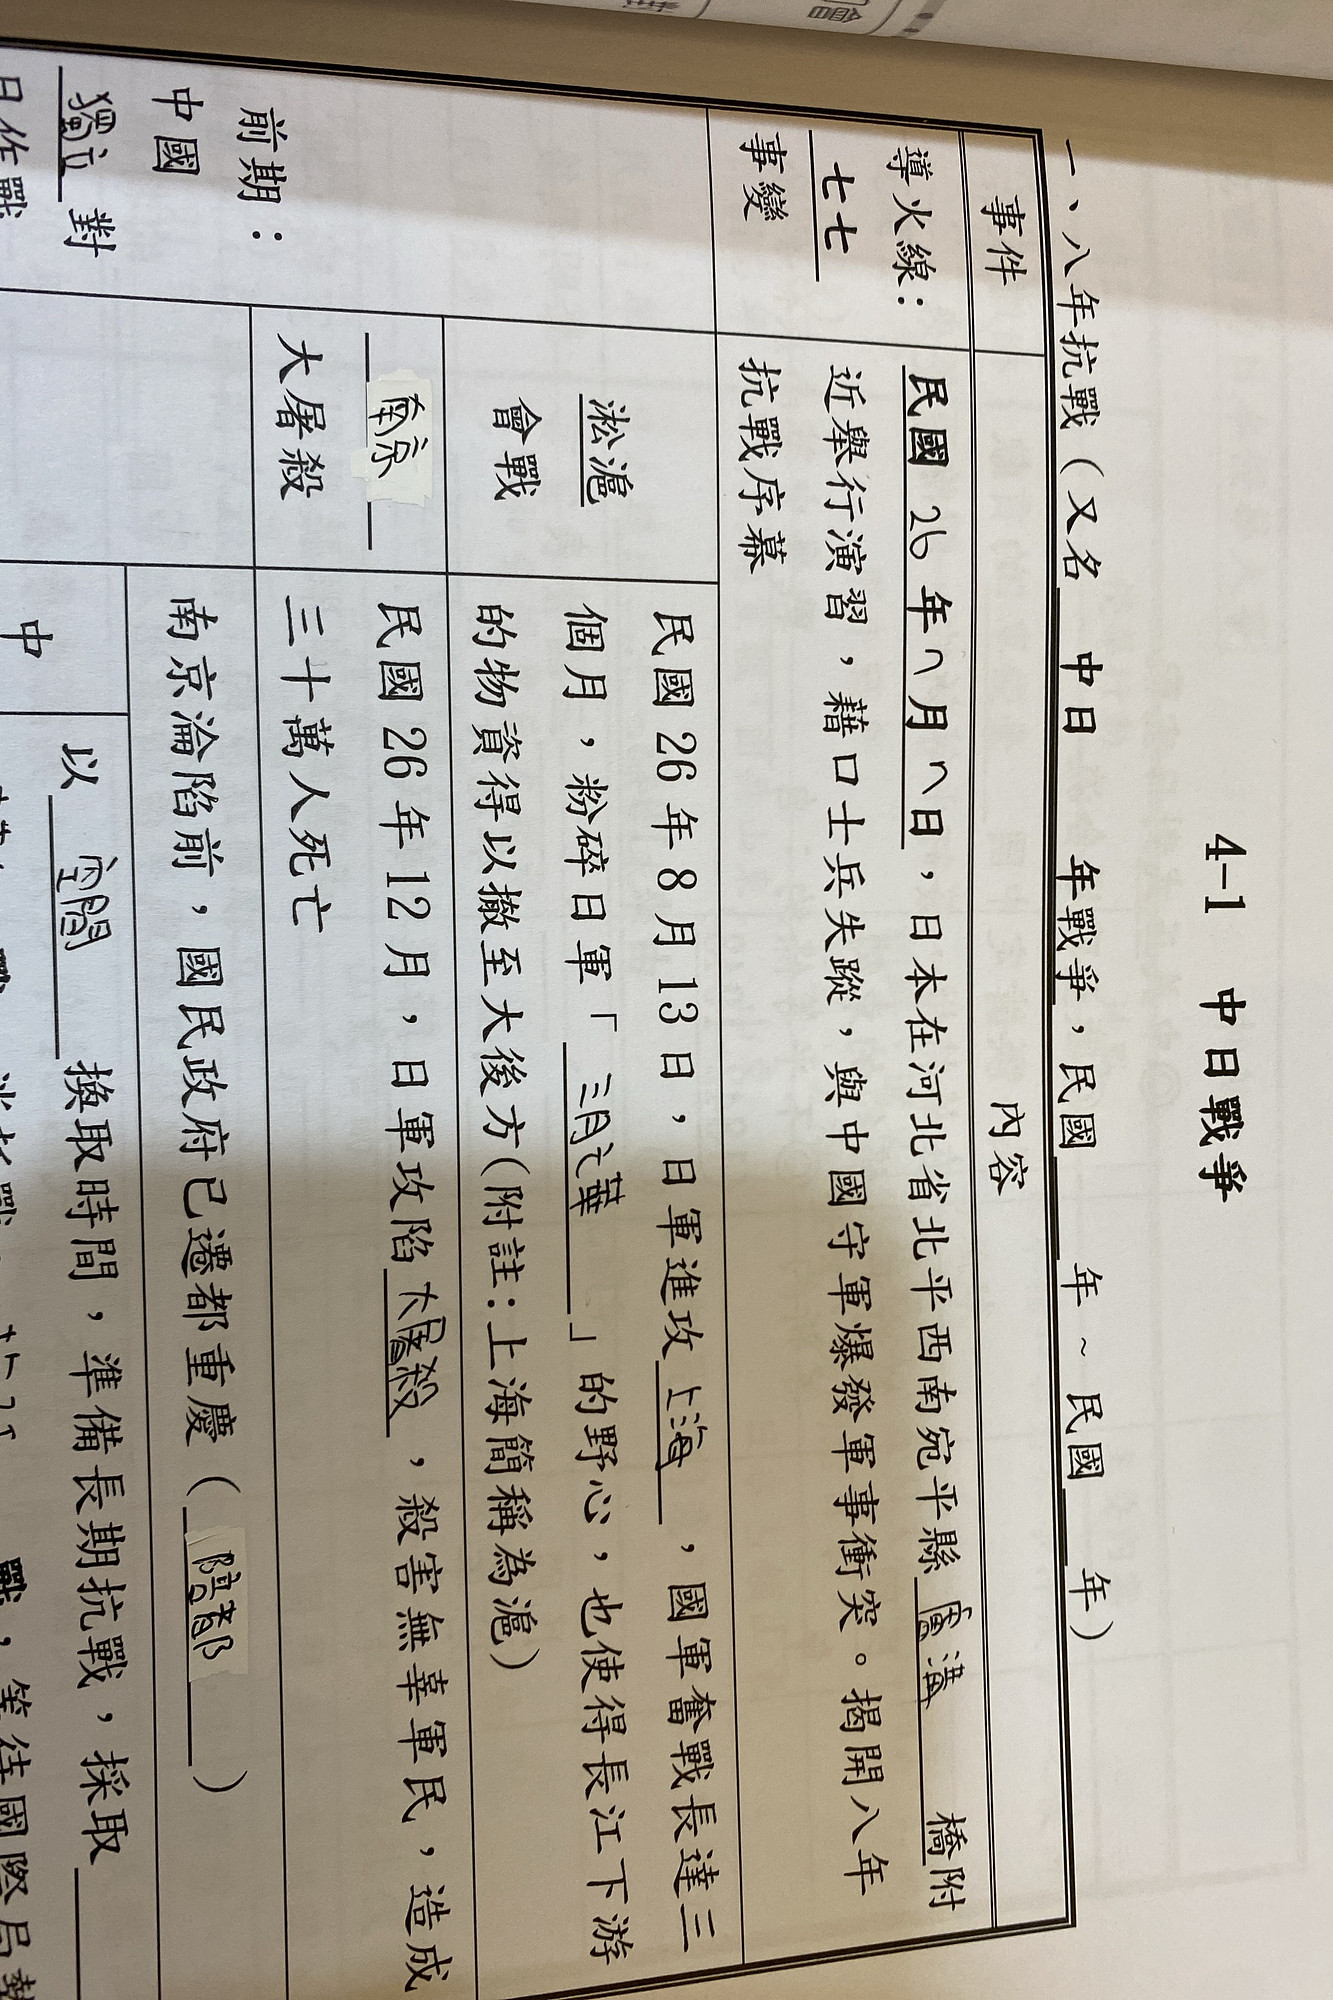 4-1 中日戰爭
一、八年抗戰（又名 中日 年戰爭，民國 年～民國 年）
事件 內容
導火線：
七七
事變
民國 26 年 7 月 7 日，日本在河北省北平西南宛平縣 盧溝 橋附
近舉行演習，藉口士兵失蹤，與中國守軍爆發軍事衝突。揭開八年
抗戰序幕
前期：
中國
獨立 對
日作戰
淞滬
會戰
民國 26 年 8 月 13 日，日軍進攻 上海 ，國軍奮戰長達三
個月，粉碎日軍「 三月亡華 」的野心，也使得長江下游
的物資得以撤至大後方(附註:上海簡稱為滬)
南京
大屠殺
民國 26 年 12 月，日軍攻陷 大屠殺 ，殺害無辜軍民，造成
三十萬人死亡
南京淪陷前，國民政府已遷都重慶（ 陪都 ）
中
以 空間 換取時間，準備長期抗戰，採取
戰，等待國際局勢